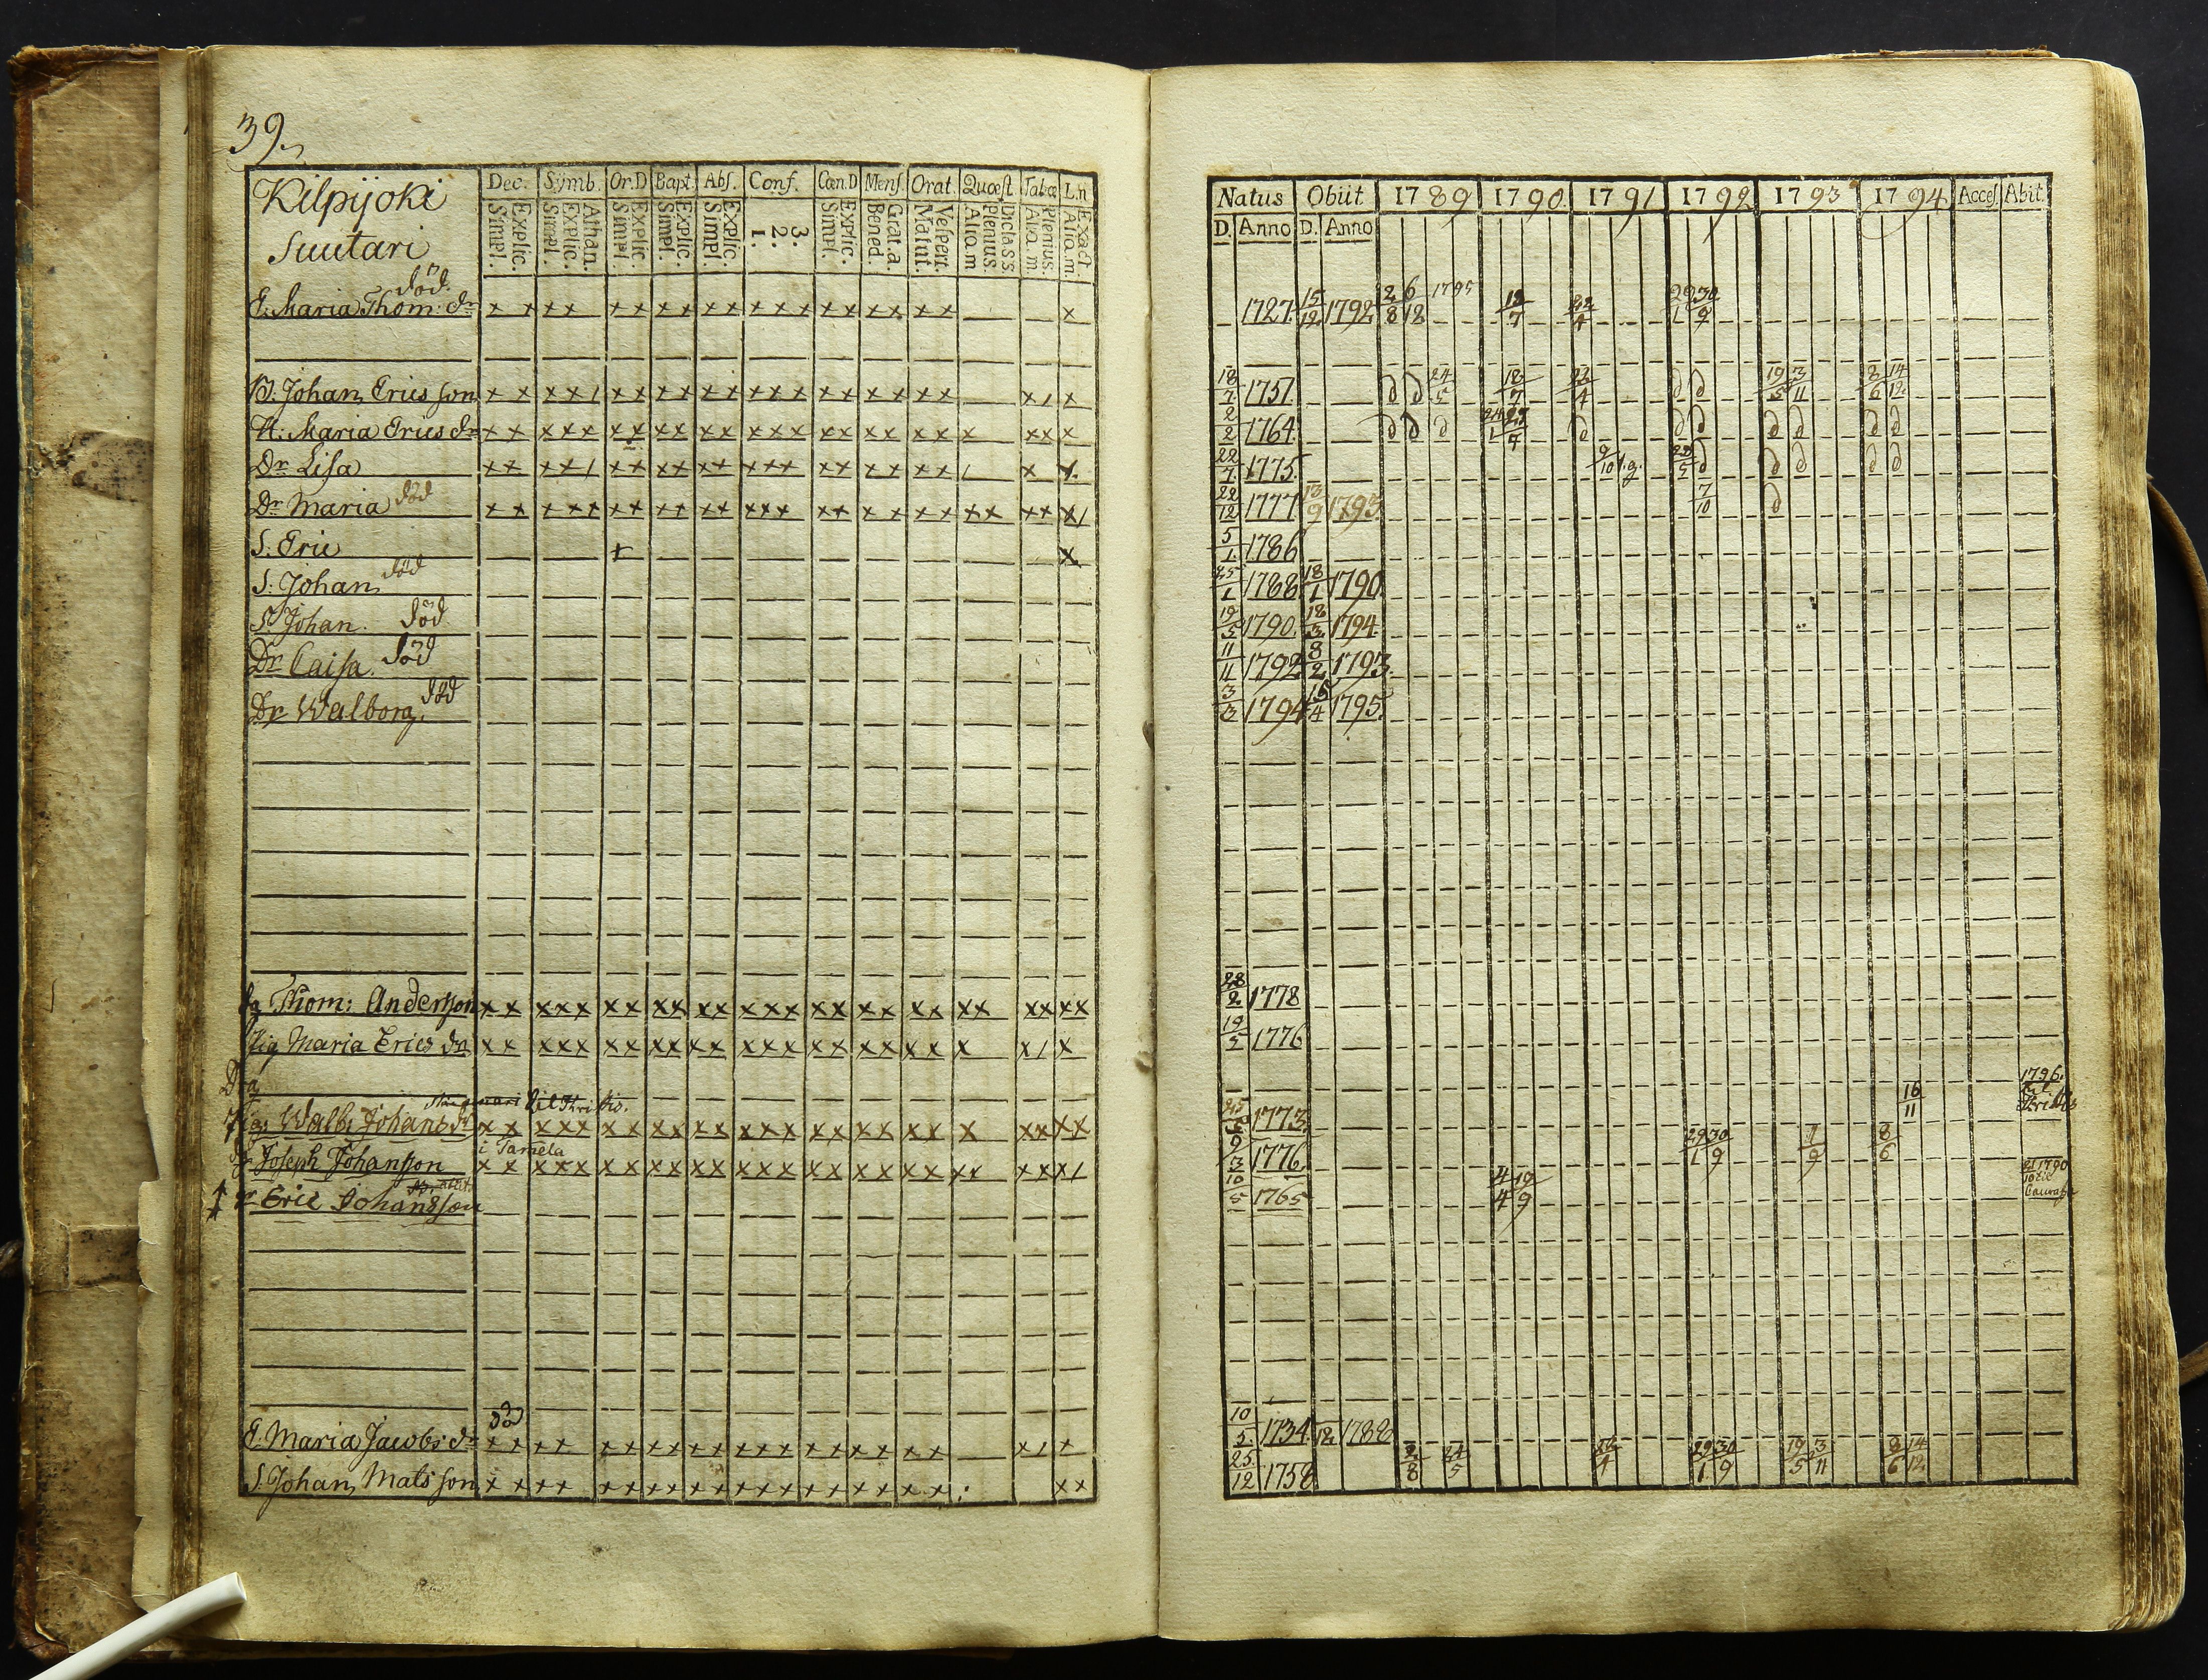 39.
Kilpijoki
Suutari
Dec. Symb. Or.D Bapt. Abs. Conf. Cœn.D Mens. Orat. Quœst Tabœ L.n
Simpl. Explic. Simpl. Explic. Athan. Simpl. Explic. Simpl. Explic. Simpl. Explic. 1. 2. 3. Simpl. Explic. Bened. Grat.a. Matut. Vespert. Aliq.m Plenius. Dic.lass. Aliq.m Plenius. Aliq.m. Exact.
död
E. Maria Thom: dr x x x x x x x x x x x x x x x x x x x x
B. Johan Ericsson x x x x / x x x x x x x x x x x x x x x x / x
H: Maria Erics dr x x x x x x x x x x x x x x x x x x x x x x x x
Dr Lisa x x x x / x x x x x x x x x x x x x x x / x x
Dr Maria död x x x x x x x x x x x x x x x x x x x x x x x x x /
S. Eric x x
S. Johan död
S. Johan. död
Dr Caisa. död
Dr Walborg. död
Thom: Andersson x x x x x x x x x x x x x x x x x x x x x x x x x x
Pig Maria Erics dr x x x x x x x x x x x x x x x x x x x x x x / x
Drg
Pig. Walb: Johans dr x x x x x x x x x x x x x x x x x x x x x x x x x
i Tamela
Joseph Johansson x x x x x x x x x x x x x x x x x x x x x x x x x /
Eric Johansson
död
E. Maria Jacobs dr x x x x x x x x x x x x x x x x x x x / x
S. Johan Matsson x x x x x x x x x x x x x x x x x x x x x
Natus Obiit 1789 1790 1791 1792 1793 1794 Acces. Abit.
D. Anno D. Anno
1727 15/12 1792 2/8 6/18 1795 18/7 22/4 29/1 30/9
18/7 1751 d d 24/5 18/7 22/4 d d 19/5 3/11 8/6 14/12
2/2 1764 d d d 24/1 d d d d d d d
22/7 1775 9/10 d d d d d
22/12 1777 13/9 1793 7/10 d
5/1 1786
25/1 1788 18/1 1790
19/5 1790. 18/3 1794
11/11 1792 8/2 1793.
3/3 1794 15/4 1795
28/2 1778
19/5 1776
1796.
1773. 16/11
9/3 1776 29/1 30/9 1/9 8/6
10/5 1765 4/4 19/9 1790
10/5 1734 12 1788
25/12 1758 2/8 24/5 29/1 30/9 19/5 3/11 8/6 14/12